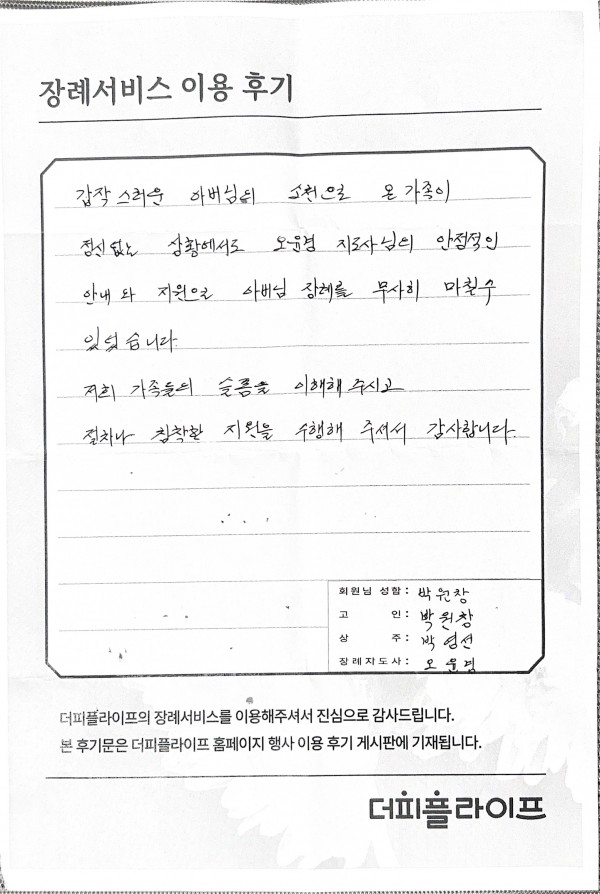 장례서비스 이용 후기
갑작스러운 아버님의 소천으로 온 가족이
정신없는 상황에서도 오윤영 지도사님의 안정적인
안내와 지원으로 아버님 장례를 무사히 마칠수
있었습니다
저희 가족들의 슬픔을 이해해 주시고
절차나 침착환 지원을 수행해 주셔서 감사합니다.
회원님 성함 : 박원창
고 인 : 박원창
상 주 : 박영선
장례지도사 : 오윤영
더피플라이프의 장례서비스를 이용해주셔서 진심으로 감사드립니다.
본 후기문은 더피플라이프 홈페이지 행사 이용 후기 게시판에 기재됩니다.
더피플라이프